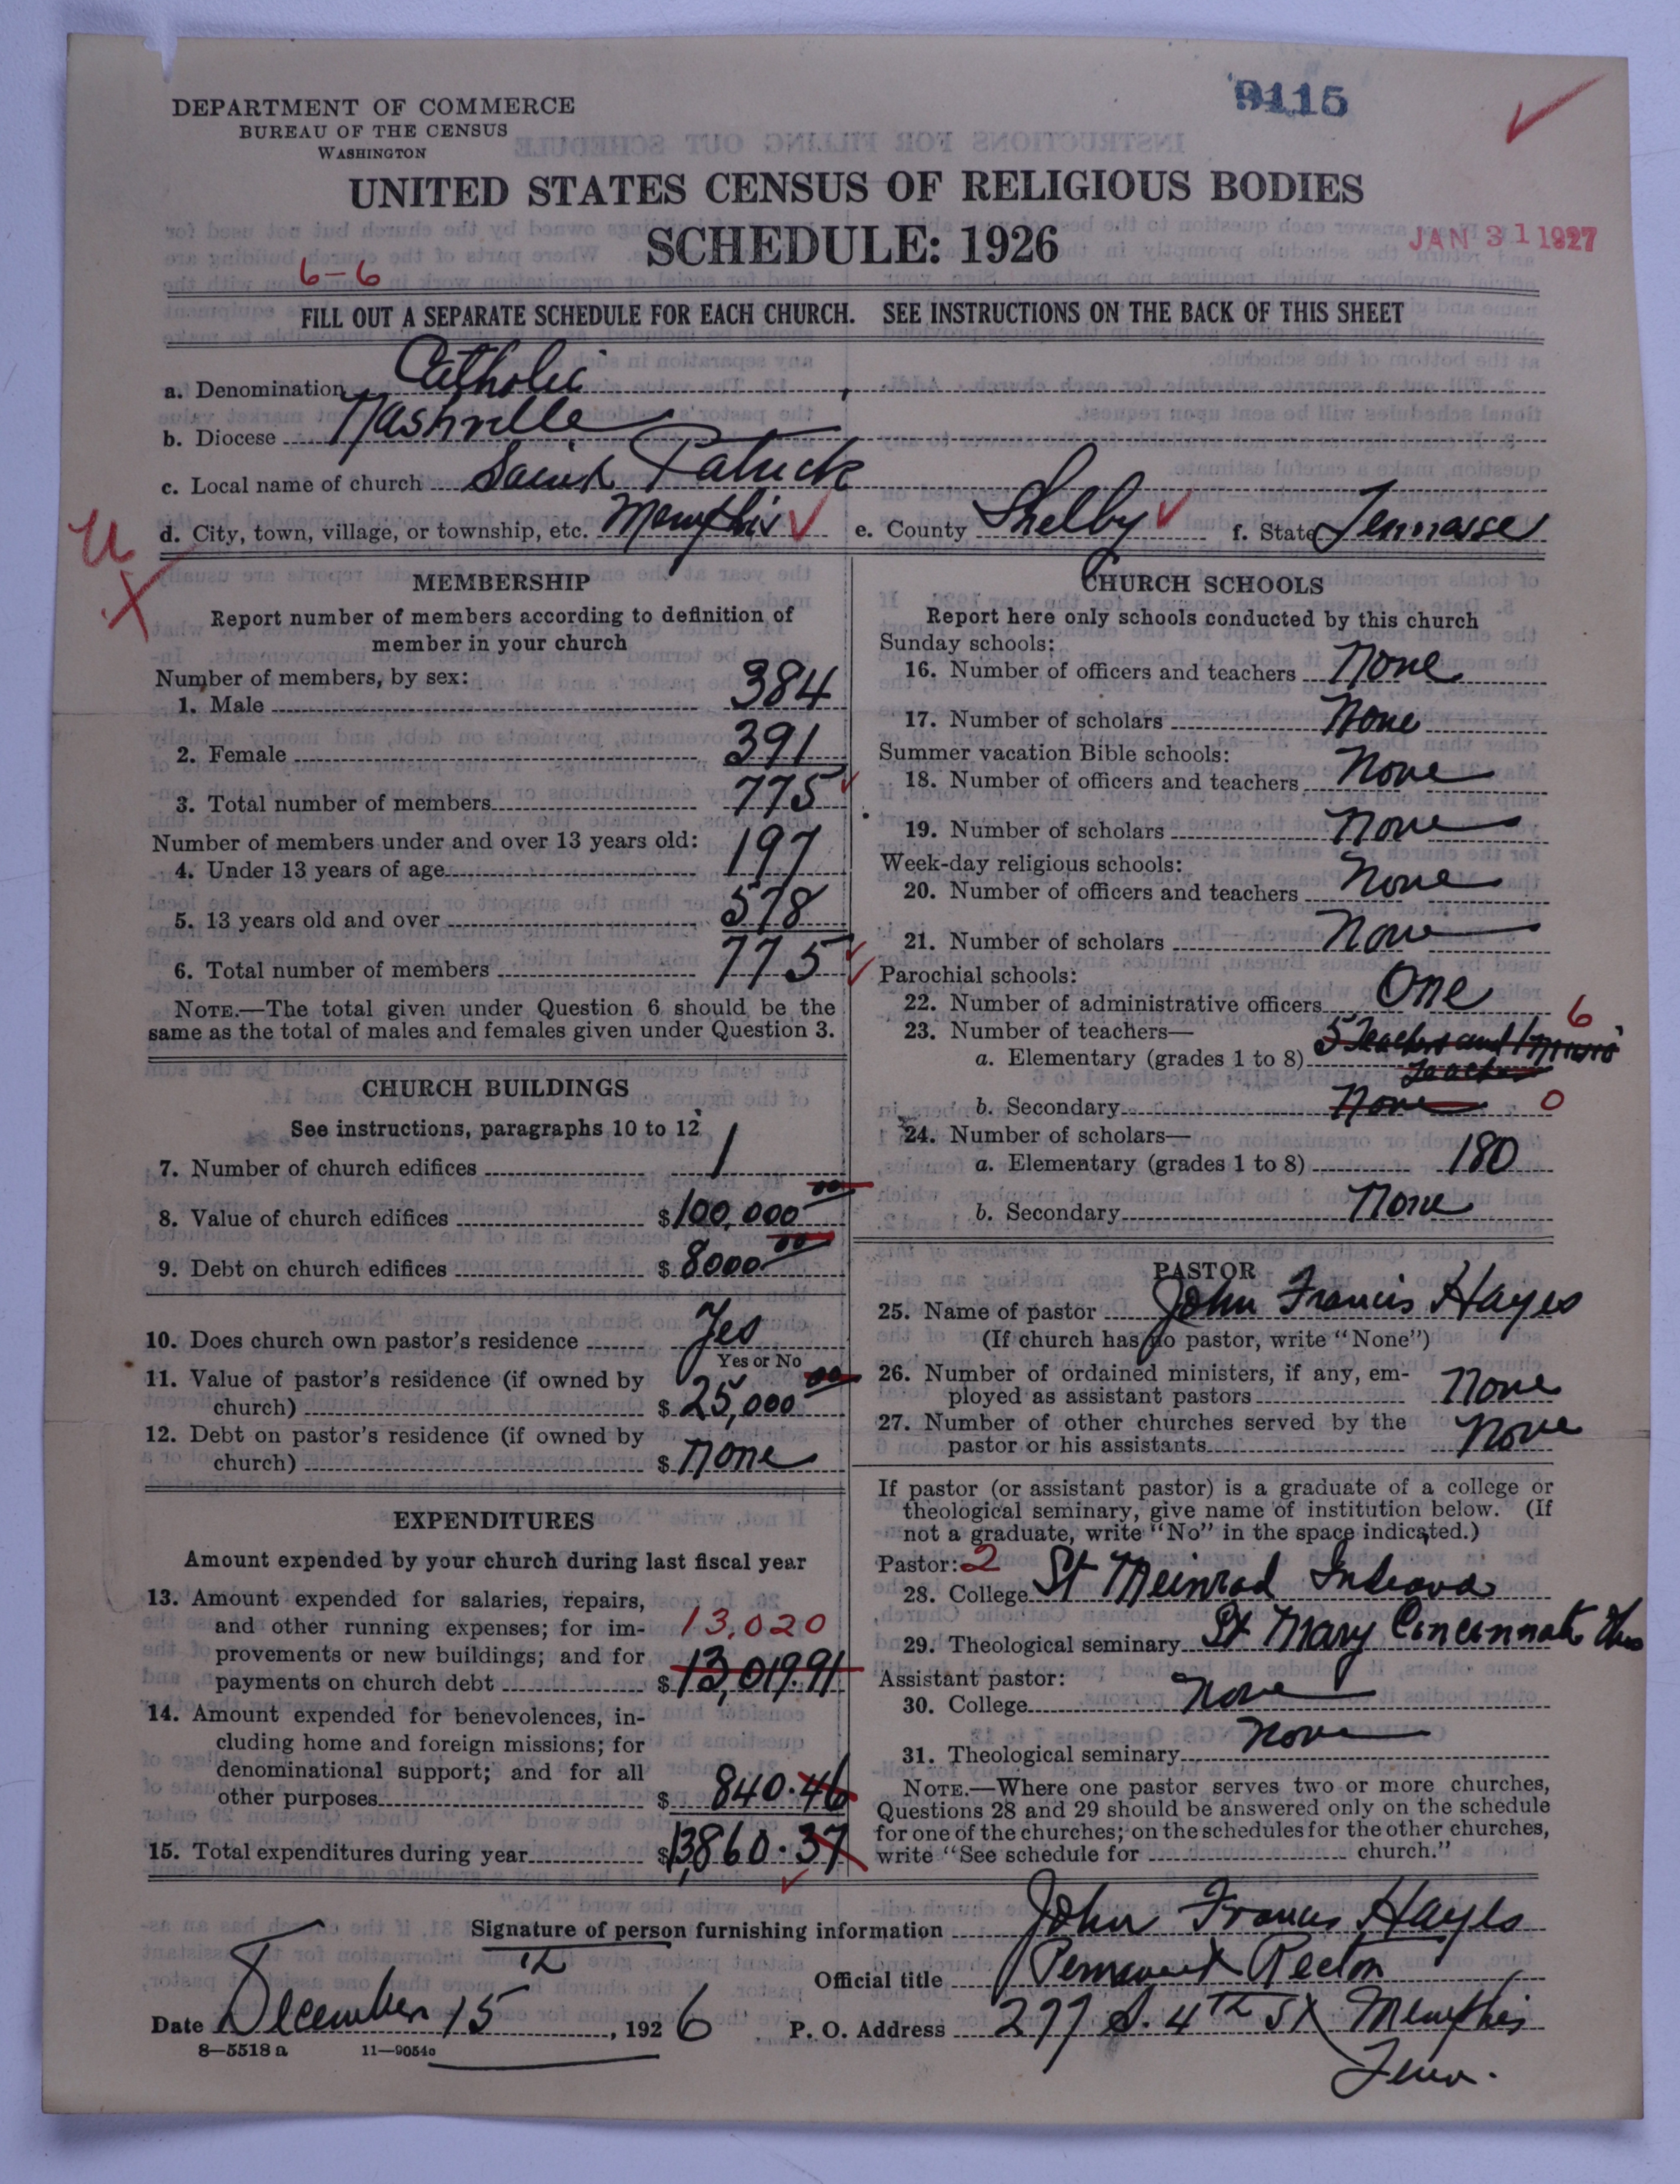 9115
DEPARTMENT OF COMMERCE
BUREAU OF THE CENSUS
WASHINGTON
UNITED STATES CENSUS OF RELIGIOUS BODIES
SCHEDULE: 1926
JAN 31 1927
6-6
FILL OUT A SEPARATE SCHEDULE FOR EACH CHURCH. SEE INSTRUCTIONS ON THE BACK OF THIS SHEET
a. Denomination Catholic
b. Diocese Nashville
c. Local name of church Saint Patrick
d. City, town, village, or township, etc. Memphis e. County Shelby f. State Tennessee
U
X
MEMBERSHIP
Report number of members according to definition of
member in your church
Number of members, by sex:
1. Male 384
2. Female 391
3. Total number of members 775
Number of members under and over 13 years old:
4. Under 13 years of age 197
5. 13 years old and over 578
6. Total number of members 775
NOTE.—The total given under Question 6 should be the
same as the total of males and females given under Question 3.
CHURCH BUILDINGS
See instructions, paragraphs 10 to 12
7. Number of church edifices 1
8. Value of church edifices $100,000 00
9. Debt on church edifices $8000 00
10. Does church own pastor's residence Yes
Yes or No
11. Value of pastor's residence (if owned by
church) $25,000 00
12. Debt on pastor's residence (if owned by
church) $None
EXPENDITURES
Amount expended by your church during last fiscal year
13. Amount expended for salaries, repairs,
and other running expenses; for im- 13,020
provements or new buildings; and for
payments on church debt $13,019.91
14. Amount expended for benevolences, in-
cluding home and foreign missions; for
denominational support; and for all
other purposes $840.46
15. Total expenditures during year $13,860.37
CHURCH SCHOOLS
Report here only schools conducted by this church
Sunday schools:
16. Number of officers and teachers None
17. Number of scholars None
Summer vacation Bible schools:
18. Number of officers and teachers None
19. Number of scholars None
Week-day religious schools:
20. Number of officers and teachers None
21. Number of scholars None
Parochial schools:
22. Number of administrative officers One
23. Number of teachers— 6
a. Elementary (grades 1 to 8) 5 Teachers and 1 music
Teacher
b. Secondary None 0
24. Number of scholars—
a. Elementary (grades 1 to 8) 180
b. Secondary None
PASTOR
25. Name of pastor John Francis Hayes
(If church has no pastor, write "None")
26. Number of ordained ministers, if any, em-
ployed as assistant pastors None
27. Number of other churches served by the
pastor or his assistants None
If pastor (or assistant pastor) is a graduate of a college or
theological seminary, give name of institution below. (If
not a graduate, write "No" in the space indicated.)
Pastor: 2
28. College St Meinrad Indiana
29. Theological seminary St Mary Cincinnati Ohio
Assistant pastor:
30. College None
31. Theological seminary None
NOTE.—Where one pastor serves two or more churches,
Questions 28 and 29 should be answered only on the schedule
for one of the churches; on the schedules for the other churches,
write "See schedule for church."
Signature of person furnishing information John Francis Hayes
Official title Permanent Rector
Date December 15th, 1926 P. O. Address 277 S. 4th St Memphis
Tenn.
8—5518 a 11—9054o